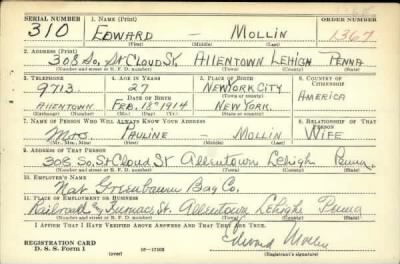 SERIAL NUMBER 1. NAME (Print) ORDER NUMBER
310 EDWARD — MOLLIN 1367
(First) (Middle) (Last)
2. ADDRESS (Print)
308 So. St Cloud St. ALLENTOWN LEHIGH PENNA
(Number and street or R. F. D. number) (Town) (County) (State)
3. TELEPHONE 4. AGE IN YEARS 5. PLACE OF BIRTH 6. COUNTRY OF CITIZENSHIP
9713 27 NEW YORK CITY
(Town or county)
DATE OF BIRTH AMERICA
ALLENTOWN FEB. 18th 1914 NEW YORK.
(Exchange) (Number) (Mo.) (Day) (Yr.) (State or country)
7. NAME OF PERSON WHO WILL ALWAYS KNOW YOUR ADDRESS 8. RELATIONSHIP OF THAT PERSON
Mrs. PAULINE — MOLLIN WIFE
(Mr., Mrs., Miss) (First) (Middle) (Last)
9. ADDRESS OF THAT PERSON
308 So. St Cloud St Allentown Lehigh Penna.
(Number and street or R. F. D. number) (Town) (County) (State)
10. EMPLOYER'S NAME
Nat Greenbaum Bag Co.
11. PLACE OF EMPLOYMENT OR BUSINESS
Railroad & Furnace St. Allentown Lehigh Penna
(Number and street or R. F. D. number) (Town) (County) (State)
I AFFIRM THAT I HAVE VERIFIED ABOVE ANSWERS AND THAT THEY ARE TRUE.
Edward Mollin
REGISTRATION CARD
D. S. S. Form 1 (over) (Registrant's signature)